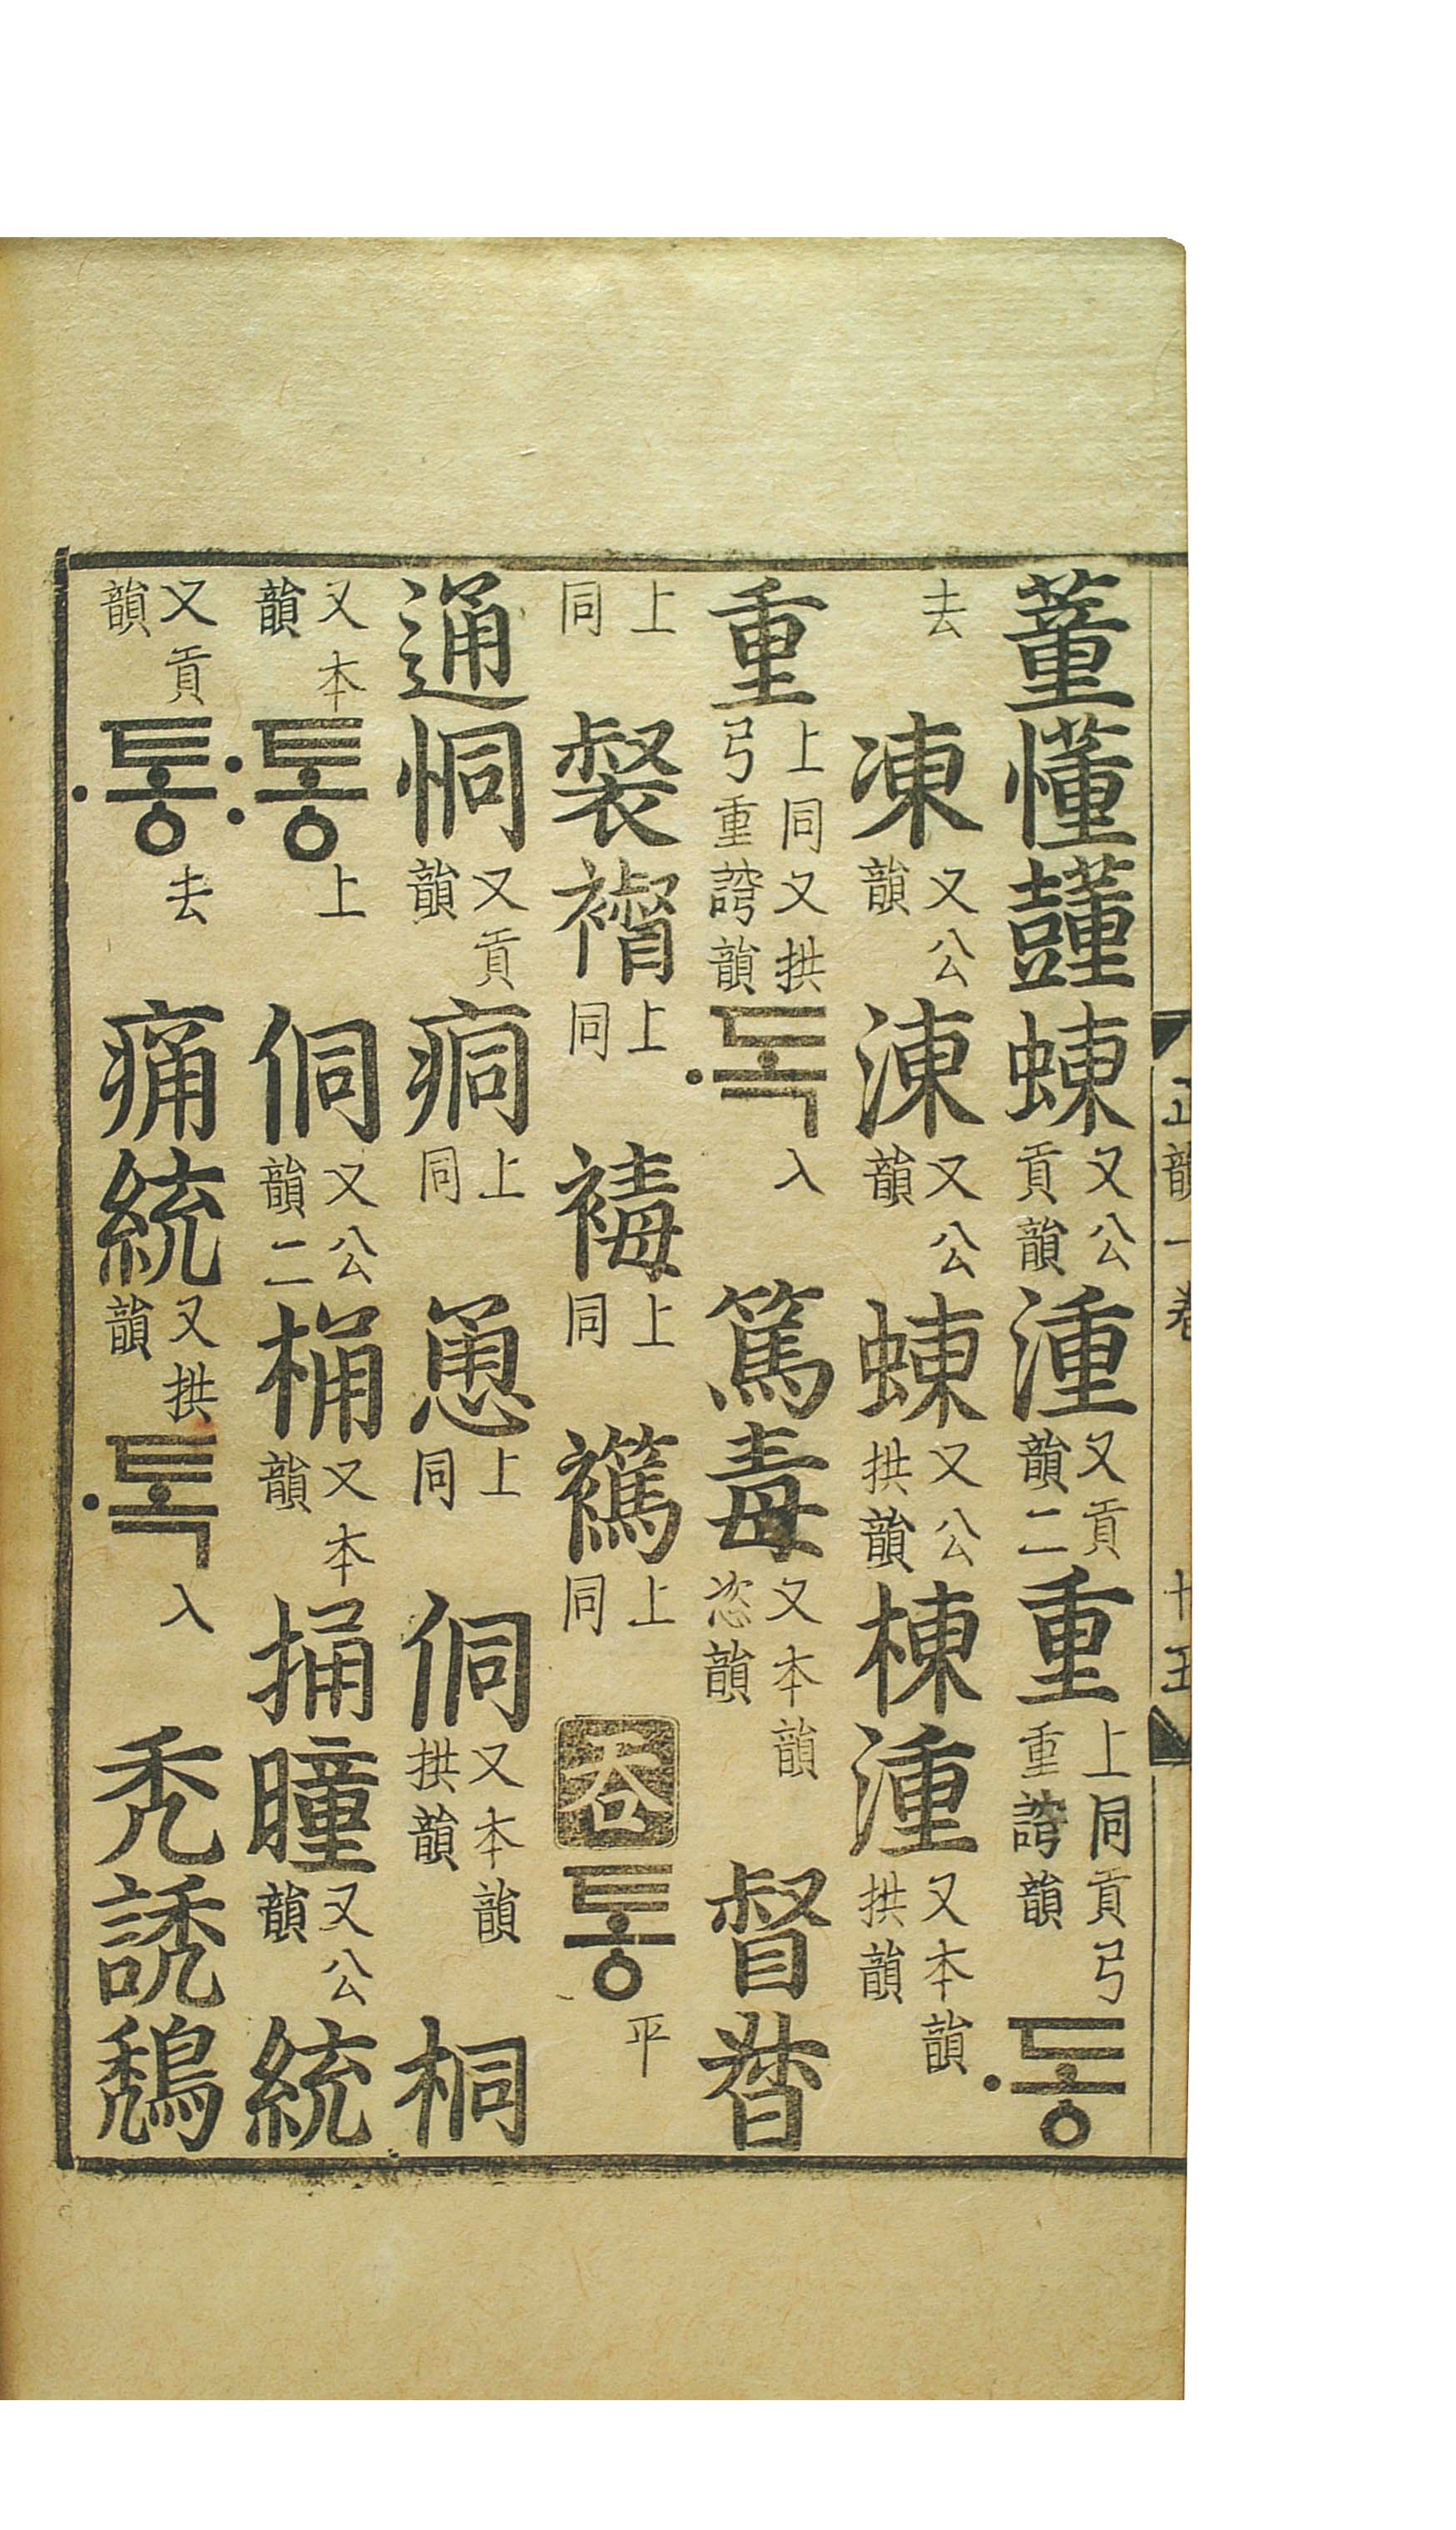 正韻一卷 十五
董懂 蝀又公貢韻湩又貢韻二重上同貢弓重誇韻·동
去凍又公韻涷又公韻蝀又公拱韻棟湩又本韻拱韻
重上同又拱弓重誇韻·독入篤毒又本韻恣韻督
上同裻 上同 上同 上同呑통平
通恫又貢韻痌上同 上同侗又本韻拱韻桐
又本韻:통上侗又公韻二桶又本韻捅曈又公韻統
又貢韻·통去痛統又拱韻·톡入禿誘鵚